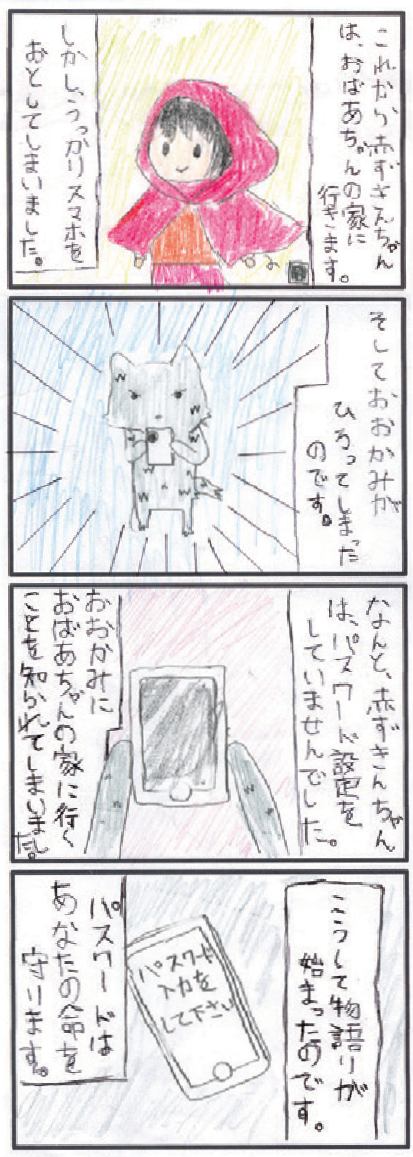 これから赤ずきんちゃん
は、おばあちゃんの家に
行きます。
しかし、うっかりスマホを
おとしてしまいました。
そしておおかみが
ひろってしまった
のです。
なんと、赤ずきんちゃん
は、パスワード設定を
していませんでした。
おおかみに
おばあちゃんの家に行く
ことを知られてしまいました。
こうして物語りが
始まったのです。
パスワード
入力を
して下さい
パスワードは
あなたの命を
守ります。